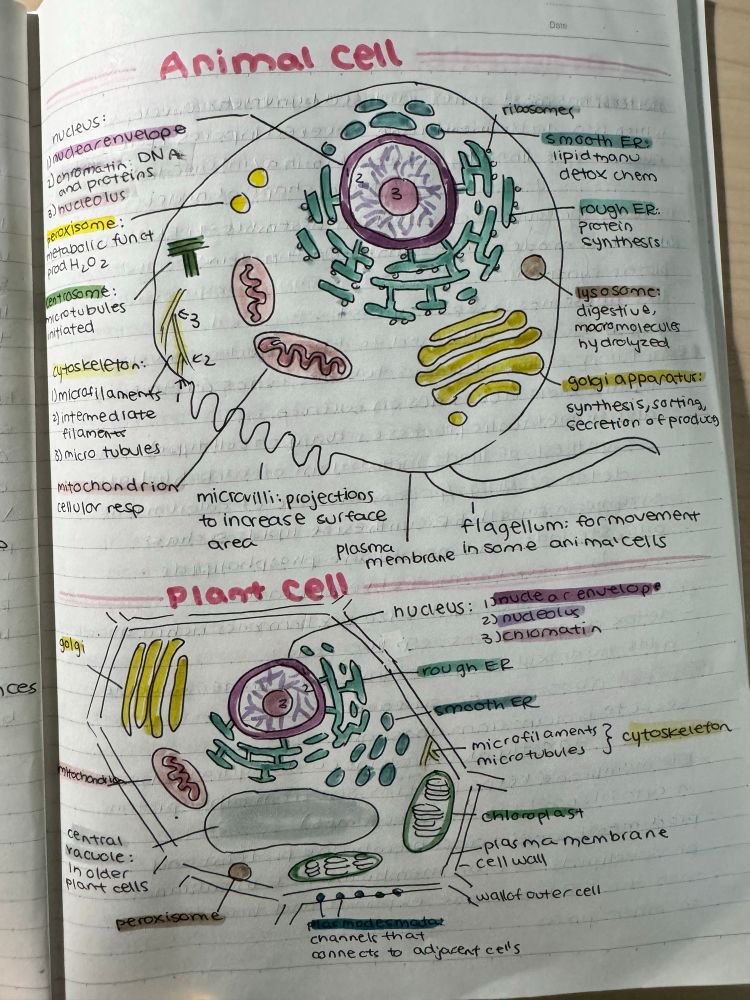 Date
Animal cell
nucleus:
1) nuclear envelope
2) chromatin: DNA
and proteins
3) nucleolus
peroxisome:
metabolic funct
prod H2O2
centrosome:
microtubules
initiated
cytoskeleton:
1) microfilaments
2) intermediate
filaments
3) micro tubules
mitochondrion
cellular resp
2
3
3
2
1
ribosomes
smooth ER:
lipid manu
detox chem
rough ER:
protein
synthesis
lysosome:
digestive,
macromolecules
hydrolyzed
golgi apparatus:
synthesis, sorting,
secretion of products
microvilli: projections
to increase surface
area
plasma
membrane
flagellum: for movement
in some animal cells
Plant cell
golgi
mitochondrion
central
vacuole:
in older
plant cells
peroxisome
2
3
nucleus: 1) nuclear envelope
2) nucleolus
3) chromatin
rough ER
smooth ER
microfilaments
microtubules } cytoskeleton
chloroplast
plasma membrane
cell wall
wall of outer cell
plasmodesmata:
channels that
connects to adjacent cells
nces